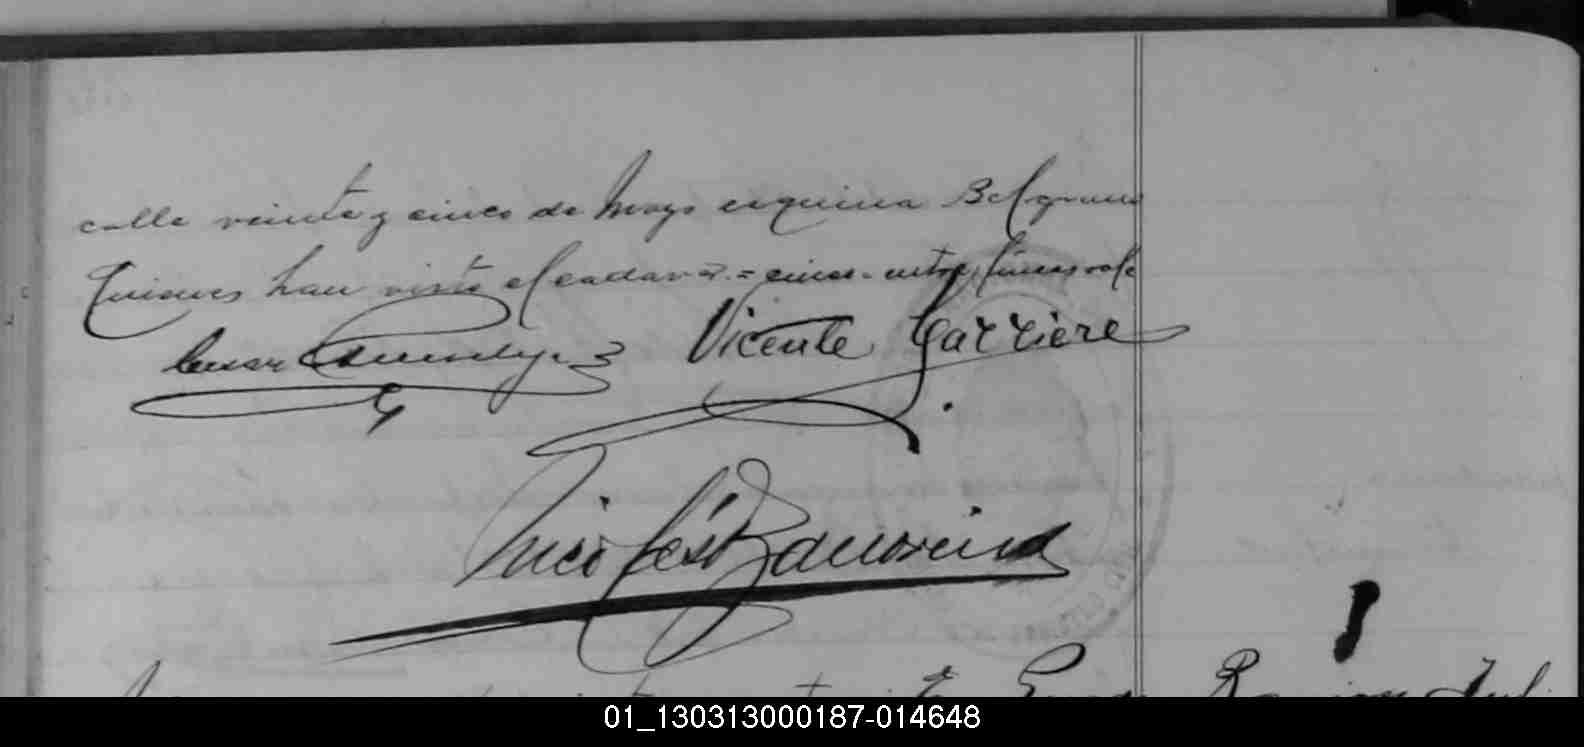 calle veinte y cinco de Mayo esquina Belgrano
Quienes han visto el cadaver. = cinco - entre lineas vale
Cesar
Vicente Carriere
Nicolás Zamorina
01_130313000187-014648